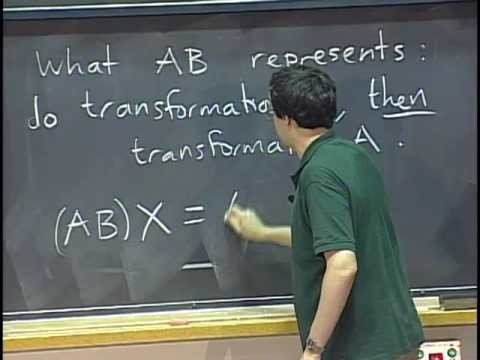 What AB represents:
do transformation then
transforma A.
(AB)X = (